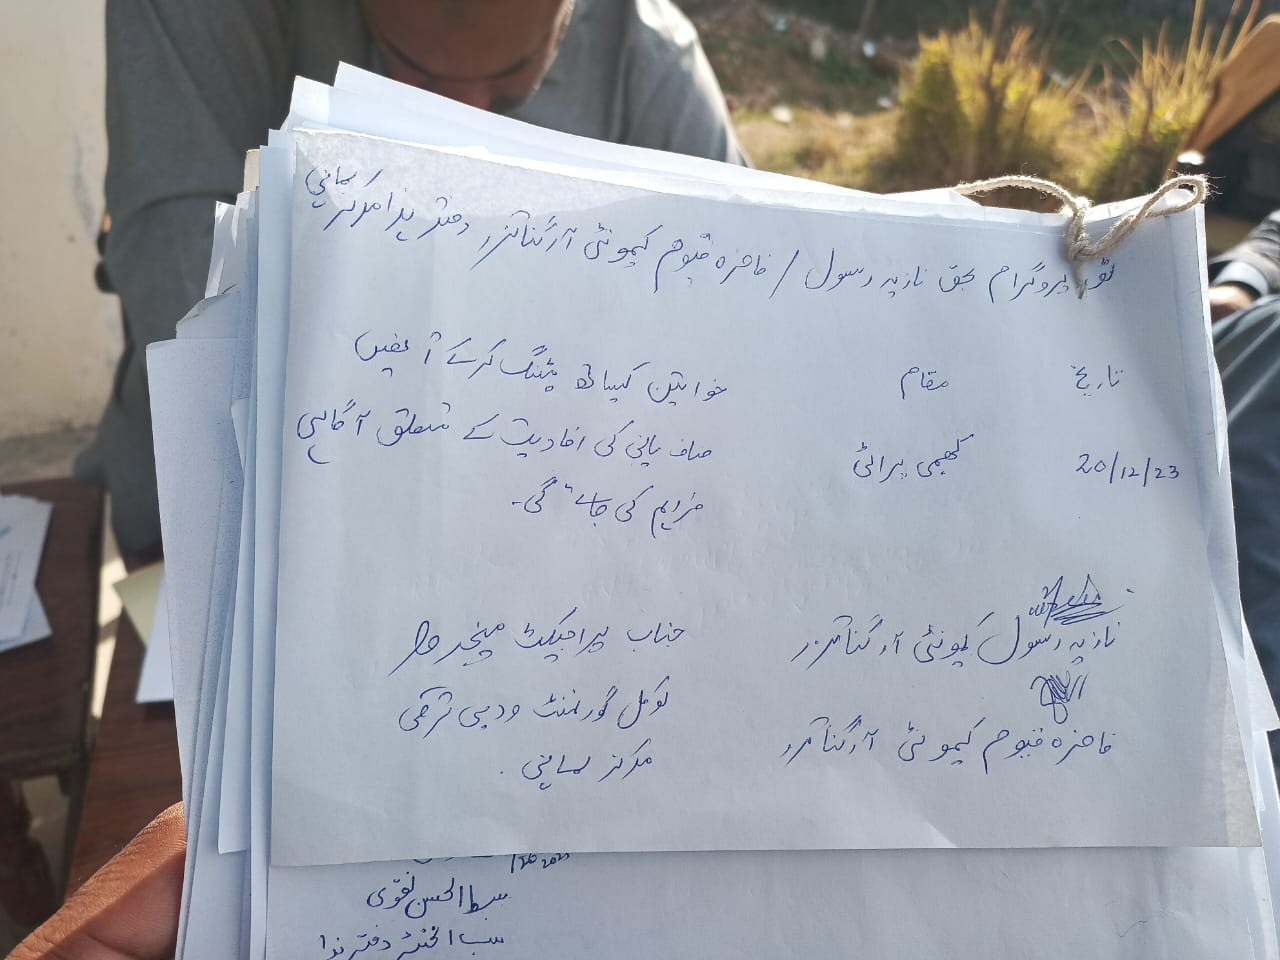 ٹور پروگرام بحق نازیہ رسول / فاخرہ قیوم کمیونٹی آرگنائزر دفتر ہذا مرکز سماہنی
تاریخ مقام خواتین کیساتھ میٹنگ کرکے انھیں
20/12/23 کھمبی پرائی صاف پانی کی افادیت کے متعلق آگاہی
فراہم کی جائے گی۔
نازیہ رسول کمیونٹی آرگنائزر
فاخرہ قیوم کمیونٹی آرگنائزر
جناب پراجیکٹ مینجر صاحب
لوکل گورنمنٹ و دیہی ترقی
مرکز سماہنی
سبط الحسن نقوی
دفتر ہذا